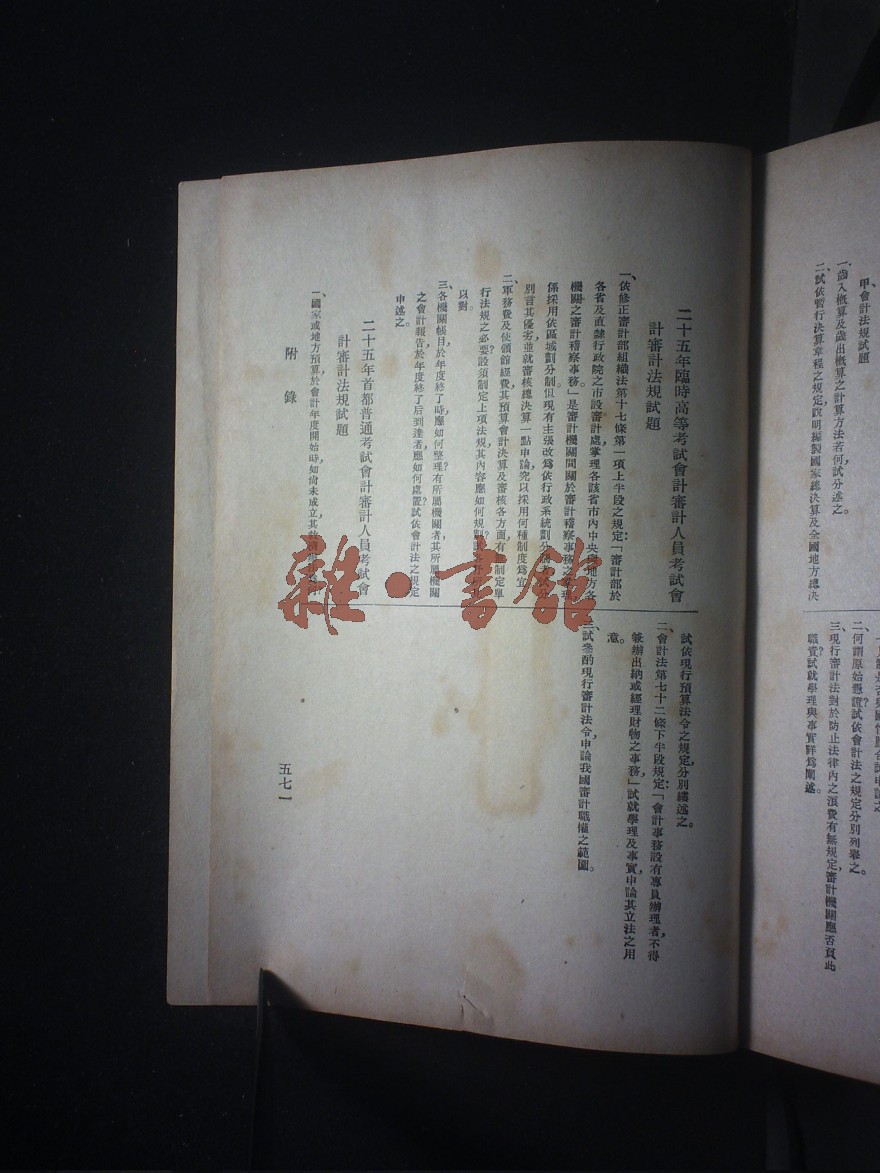 甲、會計法規試題
一、歲入概算及歲出概算之計算方法若何試分述之。
二、試依暫行決算章程之規定說明編製國家總決算及全國地方總決
二、何謂原始憑證？試依會計法之規定分別列舉之。
三、現行審計法對於防止法律內之浪費有無規定審計機關應否負此
職責試就學理與事實詳為闡述。
二十五年臨時高等考試會計審計人員考試會
計審計法規試題
一、依修正審計部組織法第十七條第一項上半段之規定：「審計部於
各省及直隸行政院之市設審計處掌理各該省市內中央與地方各
機關之審計稽察事務」是審計機關間關於審計稽察事務之
係採用依區域劃分制但現有主張改為依行政系統劃分
別言其優劣並就審核總決算一點申論究以採用何種制度為宜
二、軍務費及使領館經費其預算會計決算及審核各方面有無制定單
行法規之必要？設須制定上項法規其內容應如何規劃？
以對。
三、各機關帳目於年度終了時應如何整理？有所屬機關者其所屬機關
之會計報告於年度終了后到達者應如何處置？試依會計法之規定
申述之。
二十五年首都普通考試會計審計人員考試會
計審計法規試題
一、國家或地方預算於會計年度開始時如尚未成立其救濟
試依現行預算法令之規定分別縷述之。
二、會計法第七十二條下半段規定：「會計事務設有專員辦理者，不得
兼辦出納或經理財物之事務」試就學理及事實申論其立法之用
意。
三、試參酌現行審計法令申論我國審計職權之範圍。
附錄
五七一
雜·書館